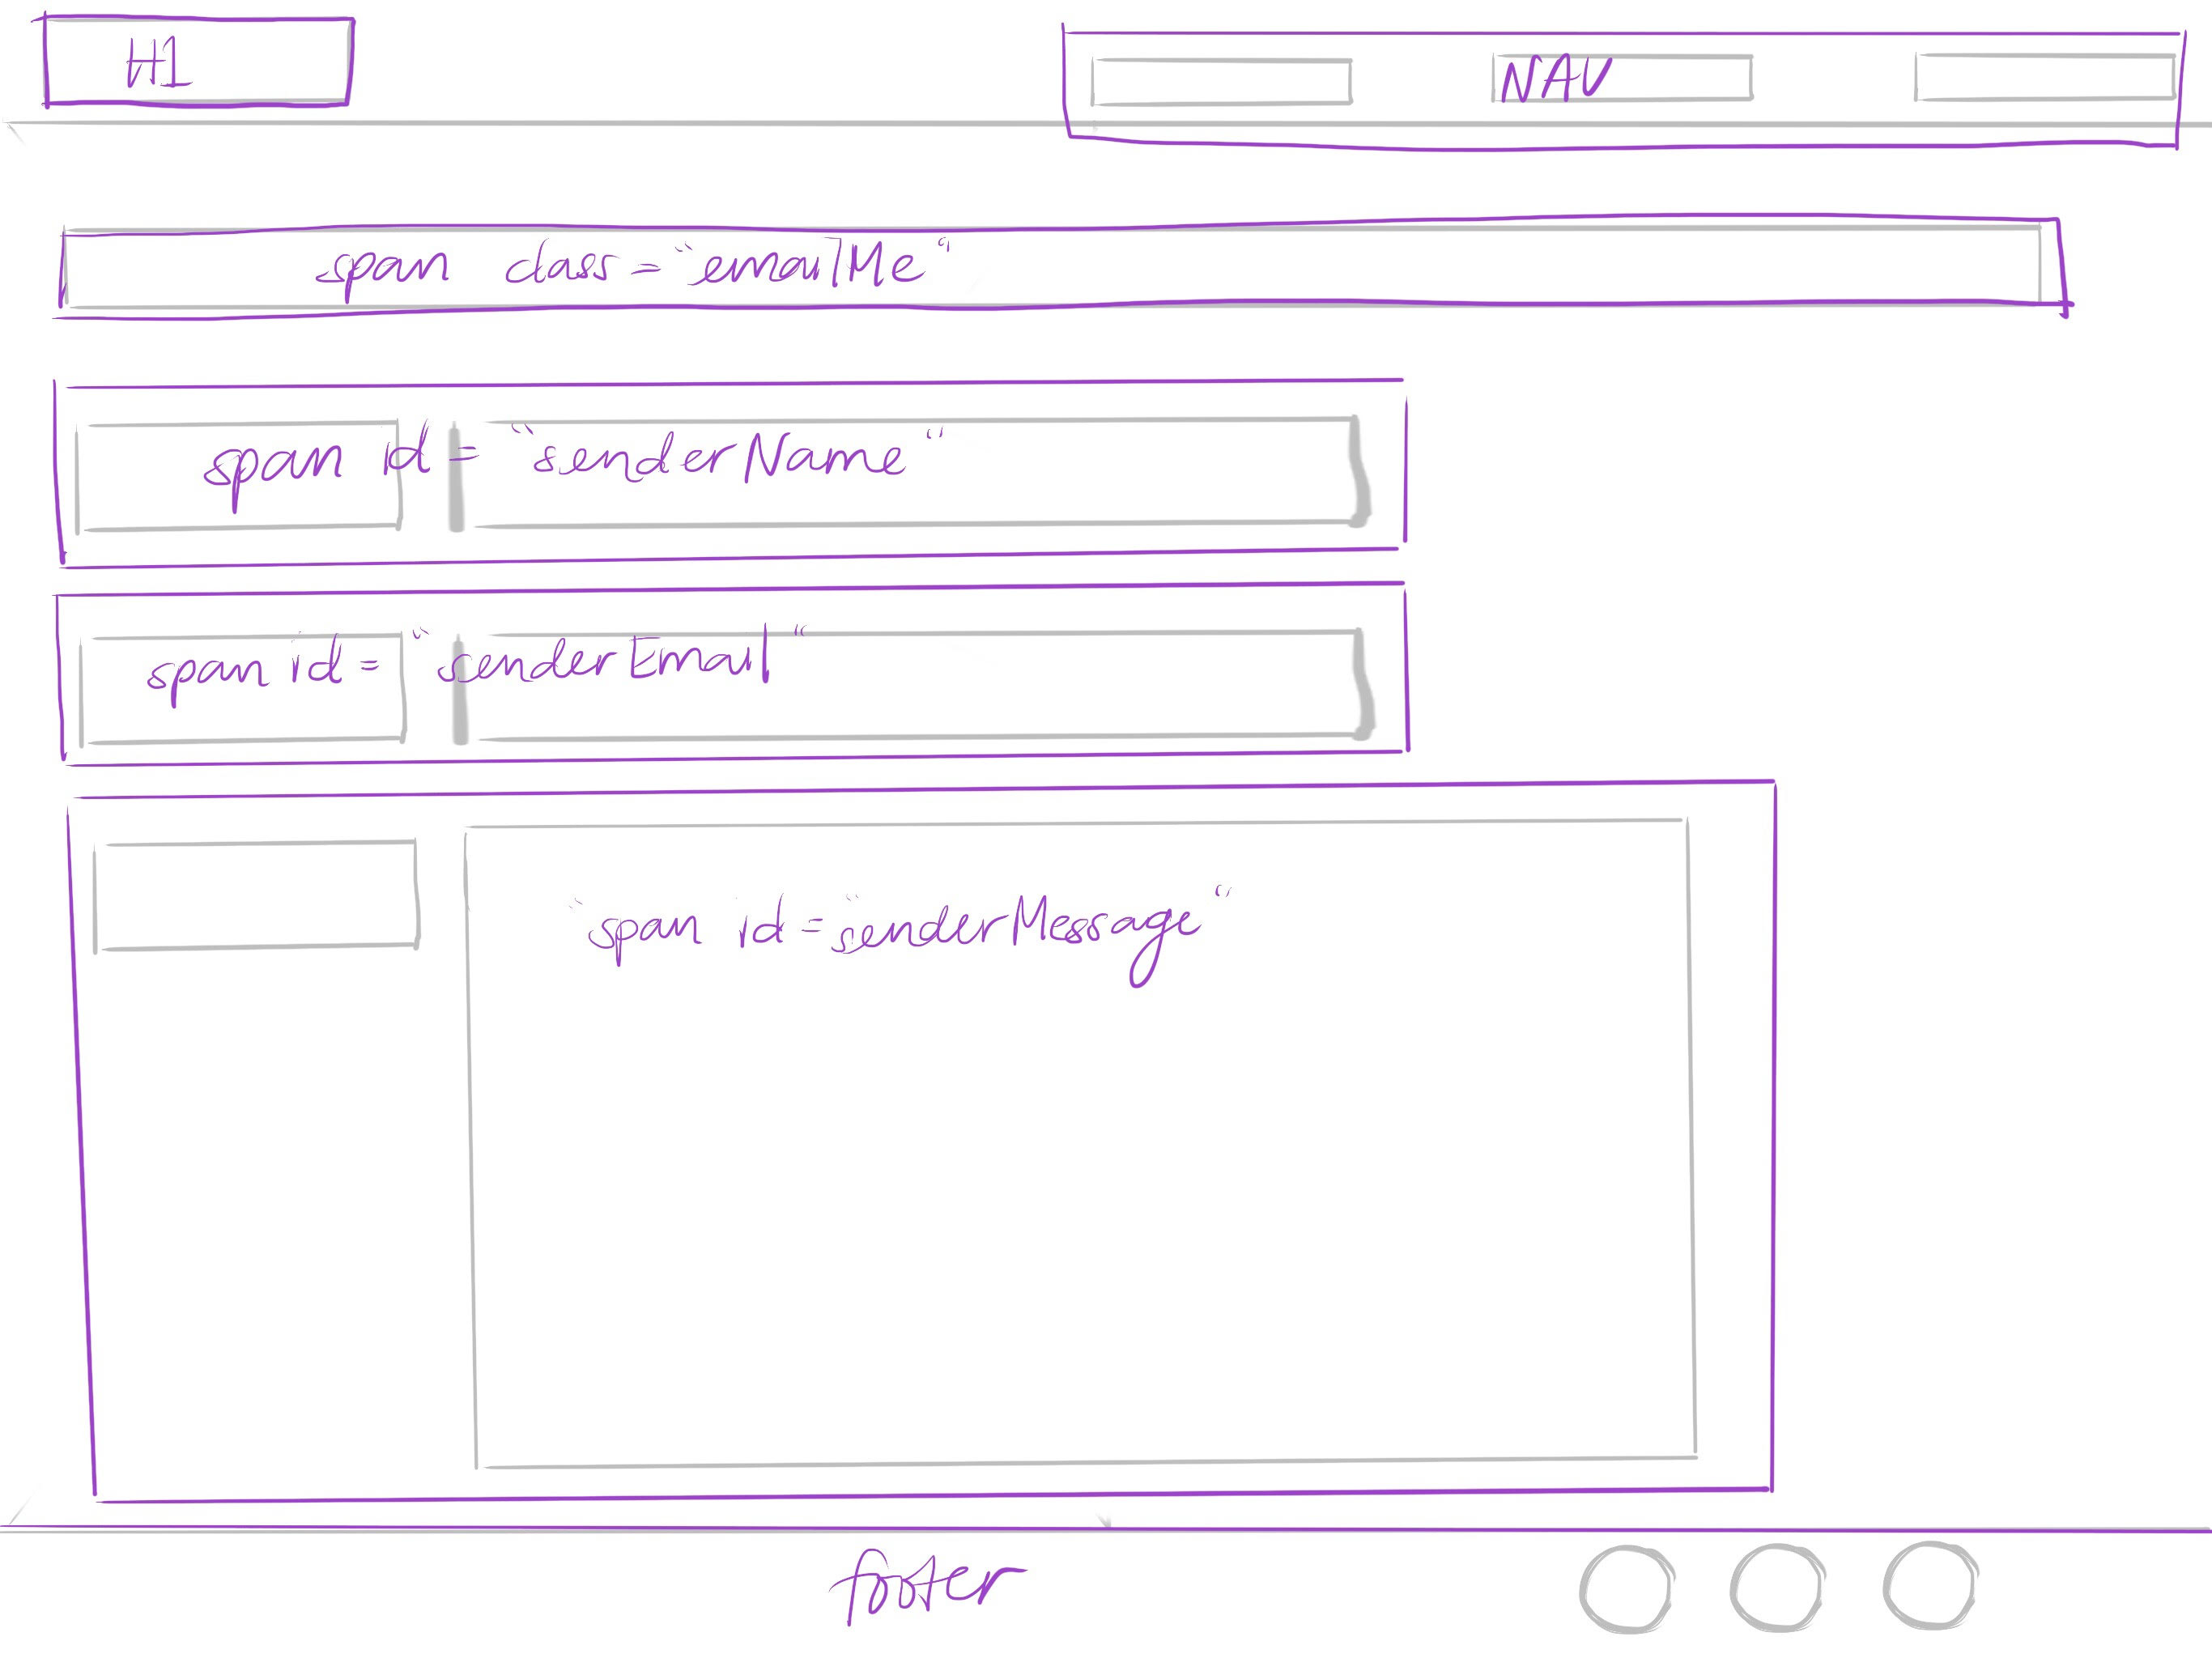 H1
NAV
span class="emailMe"
span id="senderName"
span id="senderEmail"
"span id="senderMessage"
footer